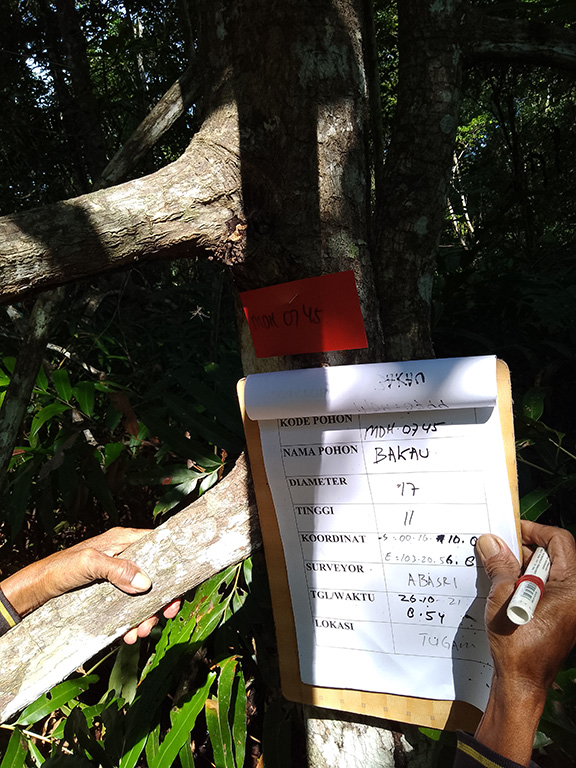 MDH 0745
KODE POHON MDH-0745
NAMA POHON BAKAU
DIAMETER 17
TINGGI 11
KOORDINAT S=00-16-
E=103-20.56.
SURVEYOR ABASRI
TGL/WAKTU 26.10-21
8.54
LOKASI